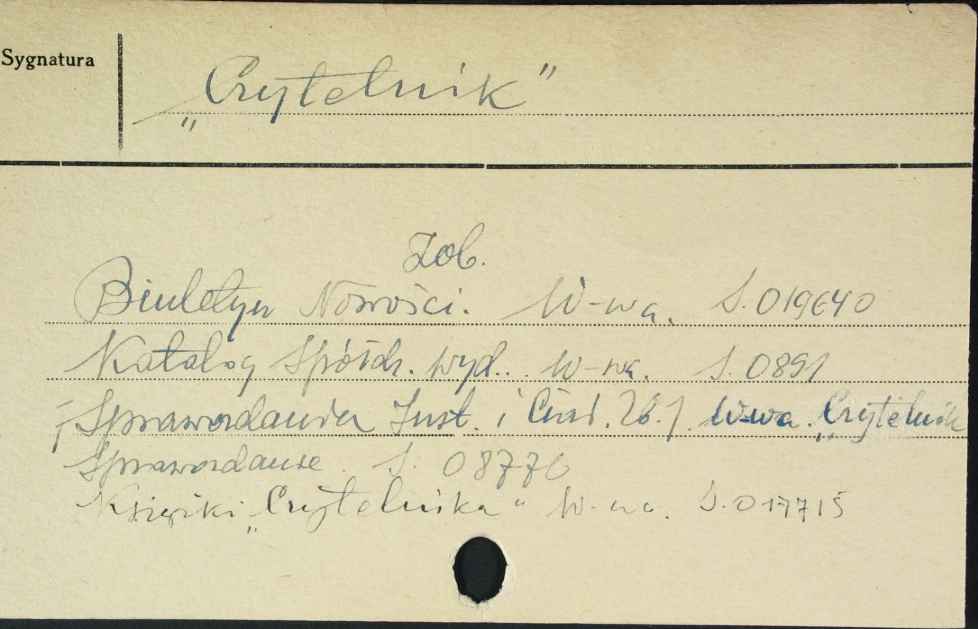 Sygnatura
„Czytelnik"
Zob.
Biuletyn Nowości. W-wa. S.019640
Katalog Spółdz. wyd.. W-wa. S.0891
[Sprawozdania Inst. i W-wa. „Czytelnik
Sprawozdanie. S. 08770
Książki „Czytelnika" W-wa. S.017715